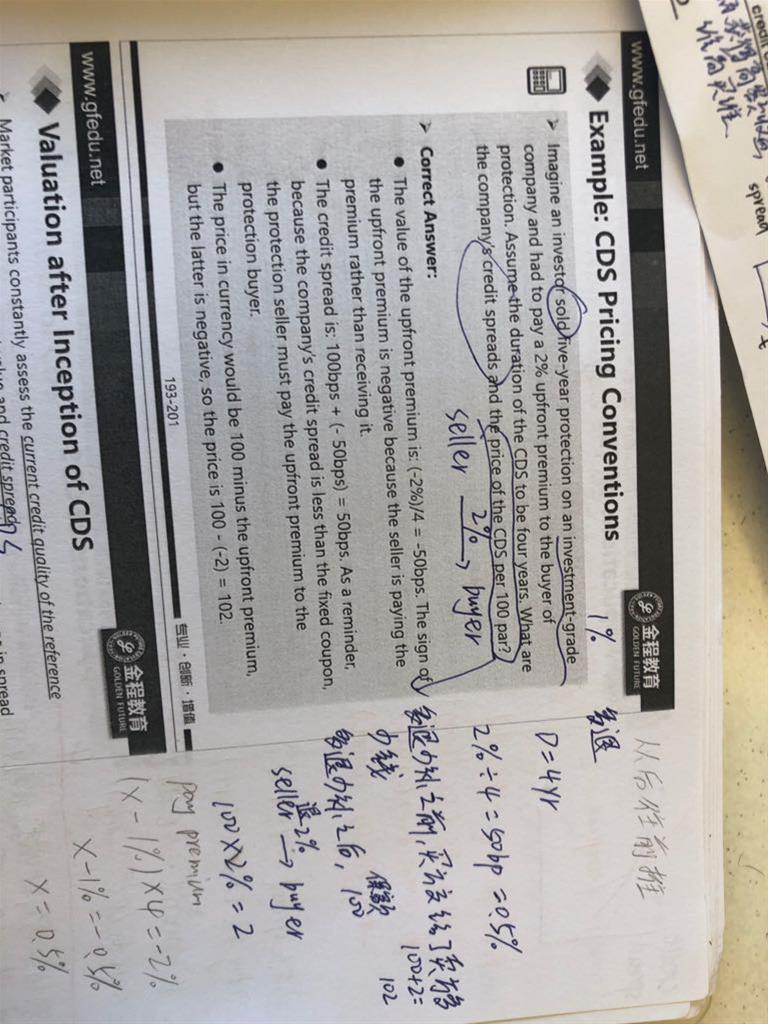 credit
spread
www.gfedu.net
金程教育
GOLDEN FUTURE
Example: CDS Pricing Conventions
1%
多退
从后往前推
➢ Imagine an investor sold five-year protection on an investment-grade
company and had to pay a 2% upfront premium to the buyer of
protection. Assume the duration of the CDS to be four years. What are
the company's credit spreads and the price of the CDS per 100 par?
D=4yr
2%÷4=50bp=0.5%
seller 2%→ buyer
➢ Correct Answer:
● The value of the upfront premium is: (-2%)/4 = -50bps. The sign of
the upfront premium is negative because the seller is paying the
premium rather than receiving it.
● The credit spread is: 100bps + (- 50bps) = 50bps. As a reminder,
because the company's credit spread is less than the fixed coupon,
the protection seller must pay the upfront premium to the
protection buyer.
● The price in currency would be 100 minus the upfront premium,
but the latter is negative, so the price is 100 - (-2) = 102.
多退少补之前,买方交给了卖方
100+2=
102
多退少补之后,
100
seller 退2%→ buyer
100×2%=2
pay premium
(x-1%)×4=-2%
x-1%=-0.5%
x=0.5%
193-201
专业·创新·增值
www.gfedu.net
金程教育
GOLDEN FUTURE
Valuation after Inception of CDS
➢ Market participants constantly assess the current credit quality of the reference
and credit spread
in spread